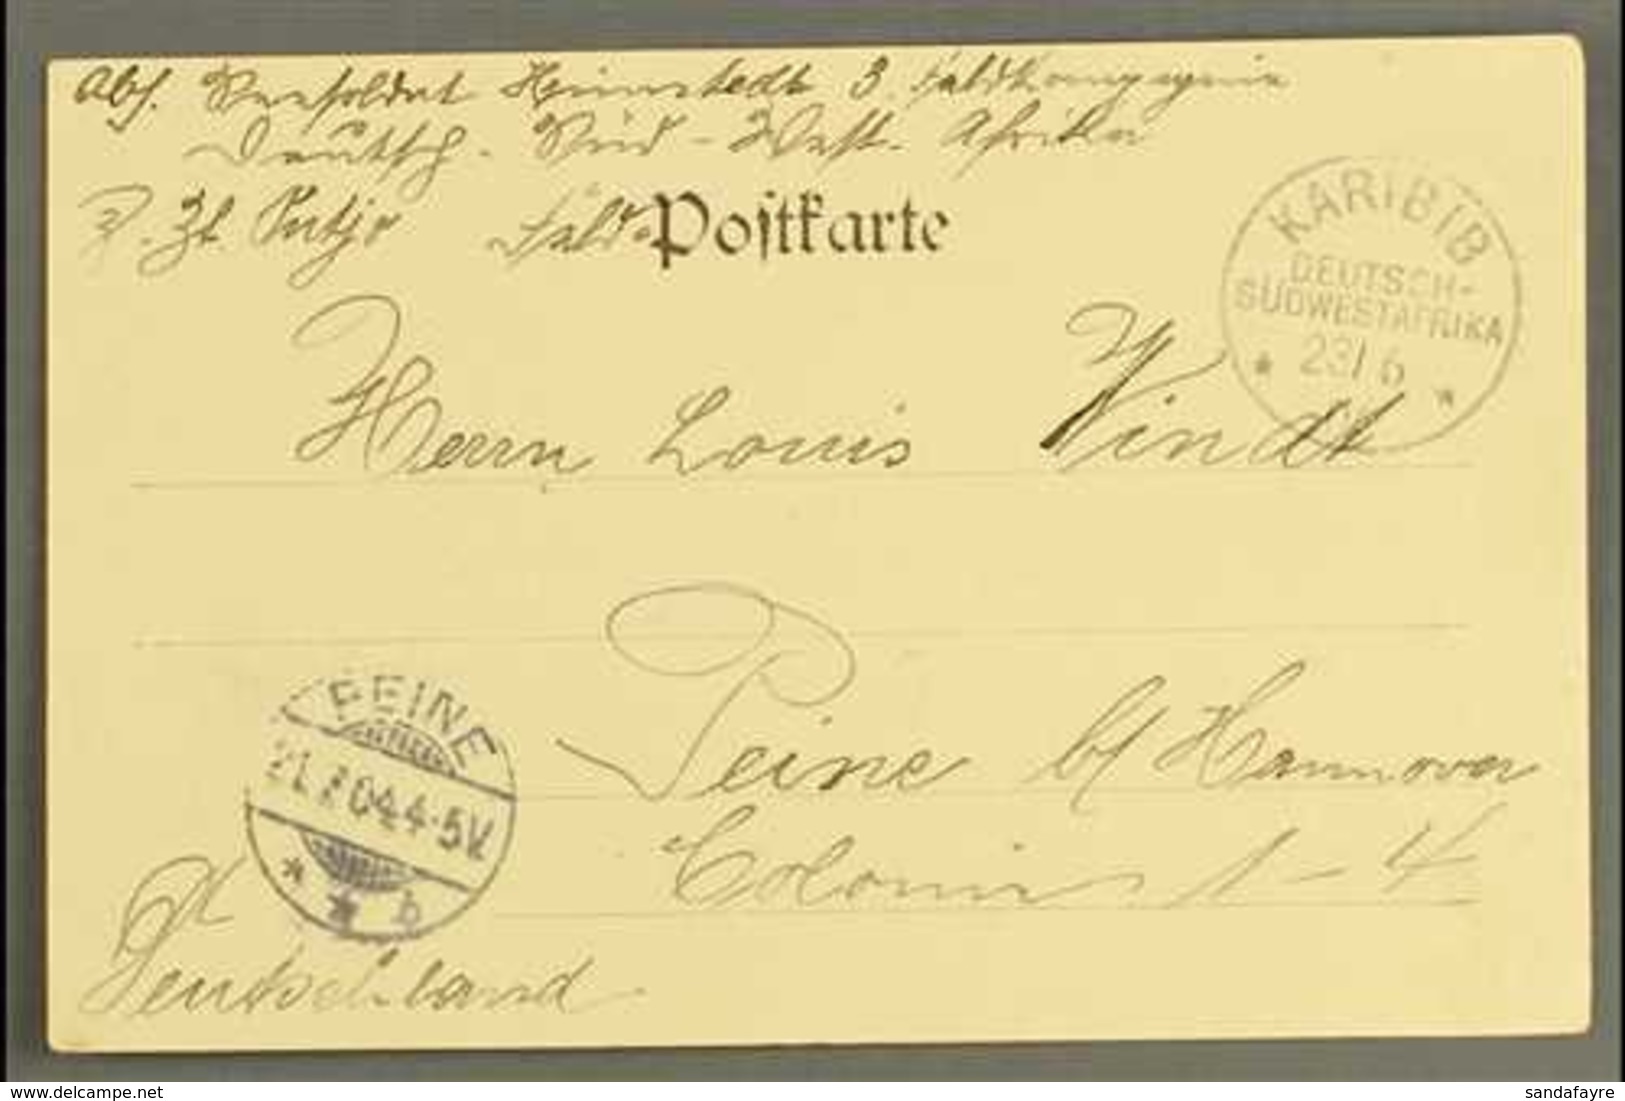 Abs. Seesoldat Heinstedt 3. Feldkompagnie
Deutsch-Süd-West-Afrika
z. Zt.
Feld-Postkarte
KARIBIB
DEUTSCH-
SÜDWESTAFRIKA
23/6
Herrn Louis Windt
Peine b/ Hannover
Colonie 1-4
PEINE
21.7.04.4-5V.
* * b
Deutschland
Delcampe.net
sandafayre